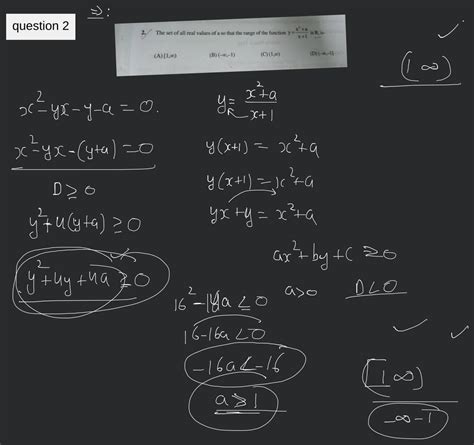 question 2
⇒:
2. The set of all real values of a so that the range of the function y = x²+a / x+1 is R, is
(A) [1,∞) (B) (-∞,-1) (C) (1,∞) (D) (-∞,-1]
(1 ∞)
x²-yx-y-a=0.
x²-yx-(y+a)=0
D≥0
y²+4(y+a)≥0
y²+4y+4a≥0
y= x²+a / x+1
y(x+1)= x²+a
y(x+1)=x²+a
yx+y=x²+a
ax²+by+c≥0
a>0 D<0
16-16a<0
-16a<-16
a≥1
[1 ∞)
-∞-1